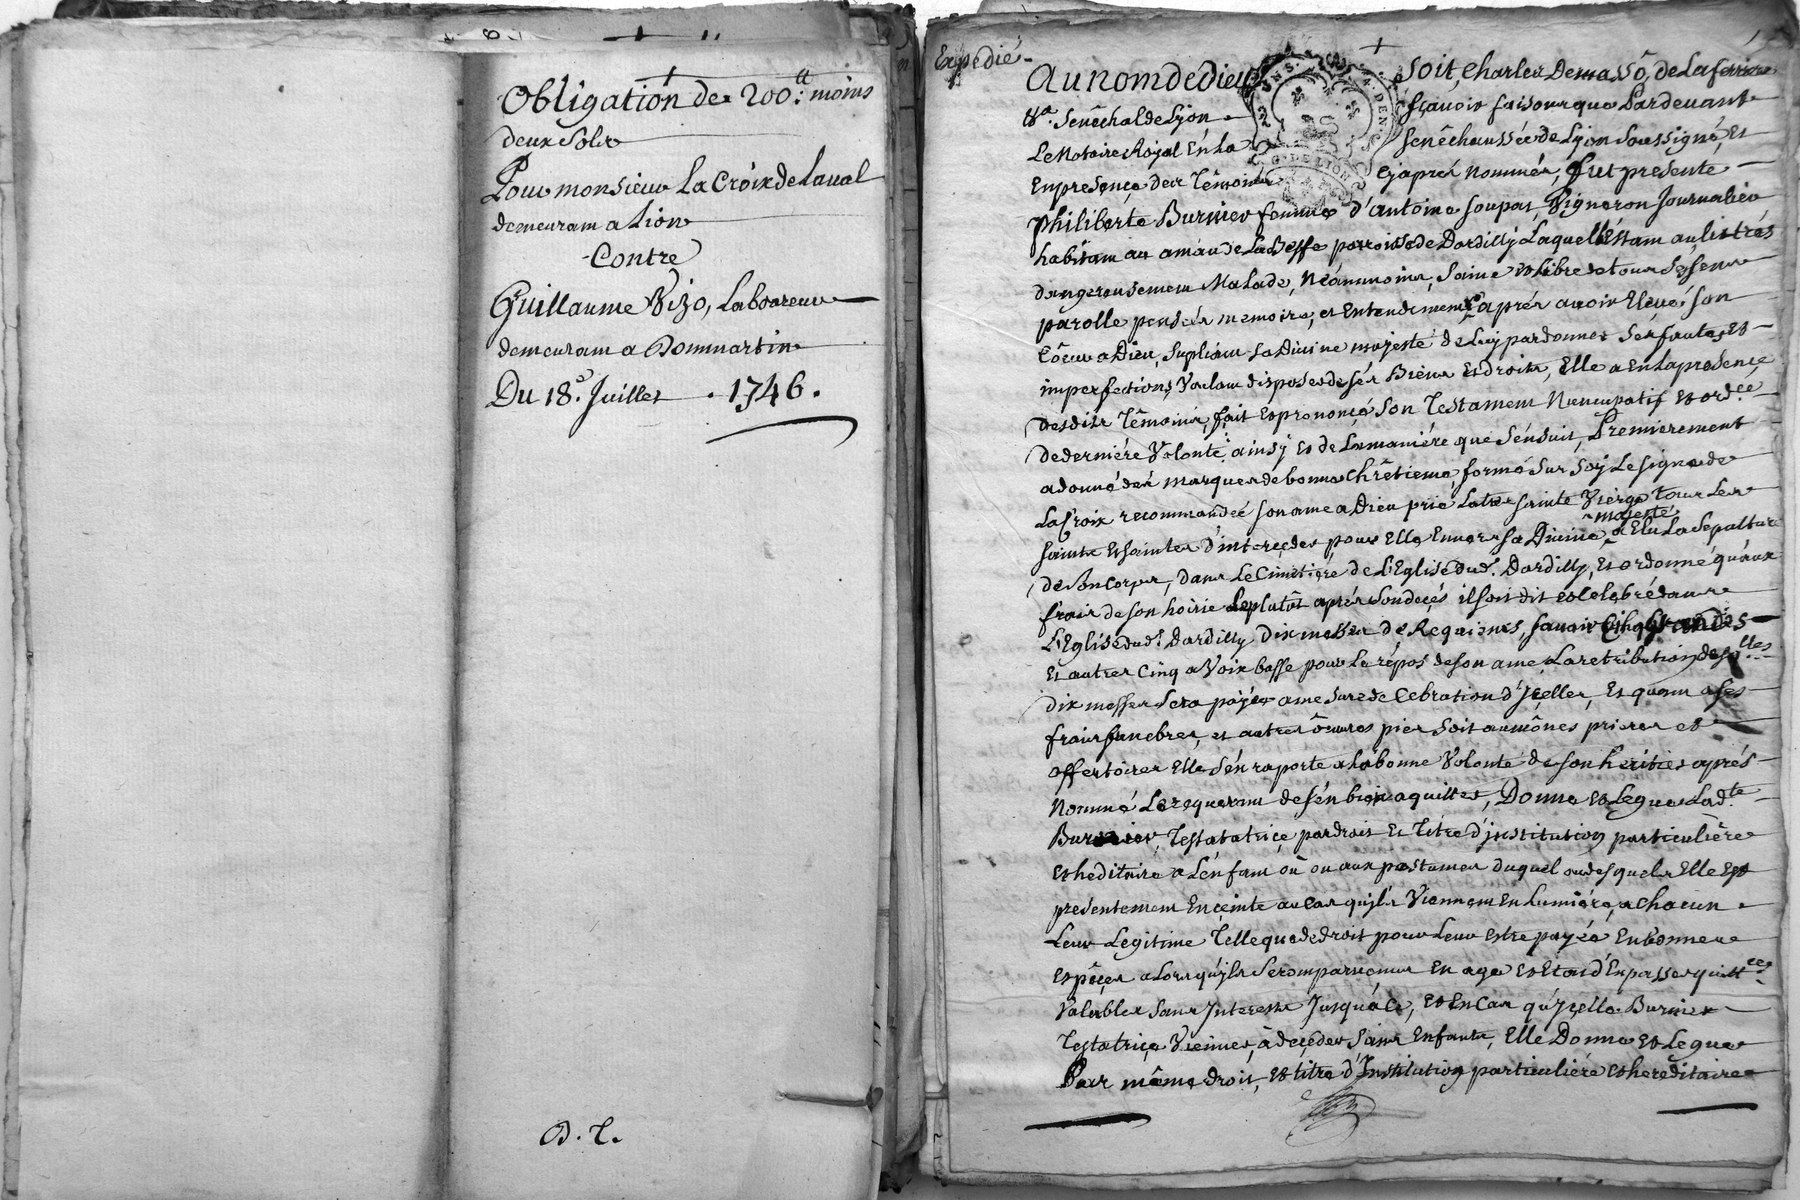 Obligation de 200.ᵗᵗ moins
deux Sols
Pour monsieur La Croix de Laval
demeurant a Lion
Contre
Guillaume Vizo, Laboureur
demeurant a Dommartin
Du 18.e Juillet . 1746.
D. T.
Expedié
Au nom de dieu Soit, Charles De massô, de La ferriere
Sénêchal de Lyon Sçavoir faisons que Pardevant
Le Notaire Royal En La Senêchaussée de Lyon Soussigné, Et
En presence des Têmoins Cy aprés Nommés, fut presente
Philiberte Burnier femme d'antoine Soupat, Vigneron Journalier
habitant au amau de La Beffe parroisse de Dardilly Laquelle Estant au lit trés
dangereusement Malade, Néanmoins, Saine et Libre de tous Ses Sens
parolle pensées memoire, et Entendement aprés avoir Elevé son
Coeur a Dieu, Supliant Sa Divine majesté de Luy pardonner Ses fautes et
imperfections, Voulant disposer de Sés Biens Et droits, Elle a En La presence
Desdits Têmoins, fait Et prononcé Son Testament Nuncupatif et ord.ce
De derniére Volonté ainsy Et de La maniére que S'énsuit, Premierement
a donné dés marques de bonne Chrêtienne, formé Sur Soy Le signe de
La Croix recommandée son ame a Dieu prié La tres sainte Vierge tous Les
saints Et saintes d'interçeder pour Elle Envers Sa Divine majesté, a Elu La Sepulture
de Son Corps, Dans Le Cimetiére de L'Eglise dud.t Dardilly, Et ordonné qu'aux
frais de son hoirie Le plutôt aprés Son deçés il soit dit et Celebré dans
L'Eglise dud.t Dardilly Dix messes de Requiems, savoir Cinq grandes
Et autres Cinq a Voix basse pour Le répos de son ame La retribution desq.lles
Dix messes Sera payée a mesure de Celebration d'Jcelles, Et quant a ses
frais funebres, et autres Oeuvres pies Soit aumônes prieres et
offertoires Elle S'én raporte a La bonne Volonté de son heritier aprés
Nommé Le requerant de S'én bien aquitter, Donne et Legue Lad.te
Burnier, Testatatrice par droit Et Titre d'jnstitution particulière
Et heditaire a L'énfant où ou aux postumes duquel ou desquels Elle Est
presentement Enceinte au Cas qu'jls Viennent En Lumiére, a Chacun
Leur Legitime Telle que de droit pour Leur Estre payée En bonnes
Espéçes a Lors qu'jls Seront parvenus En age Et Etat d'En passer quitt.ces
Valables Sans Interests Jusqu'a Ce, et En Cas qu'Jcelle Burnier
Testatrice Viennes, à deçeder Sans Enfants, Elle Donne et Legue
Par même droit, et titre d'Institution particuliére et hereditaire